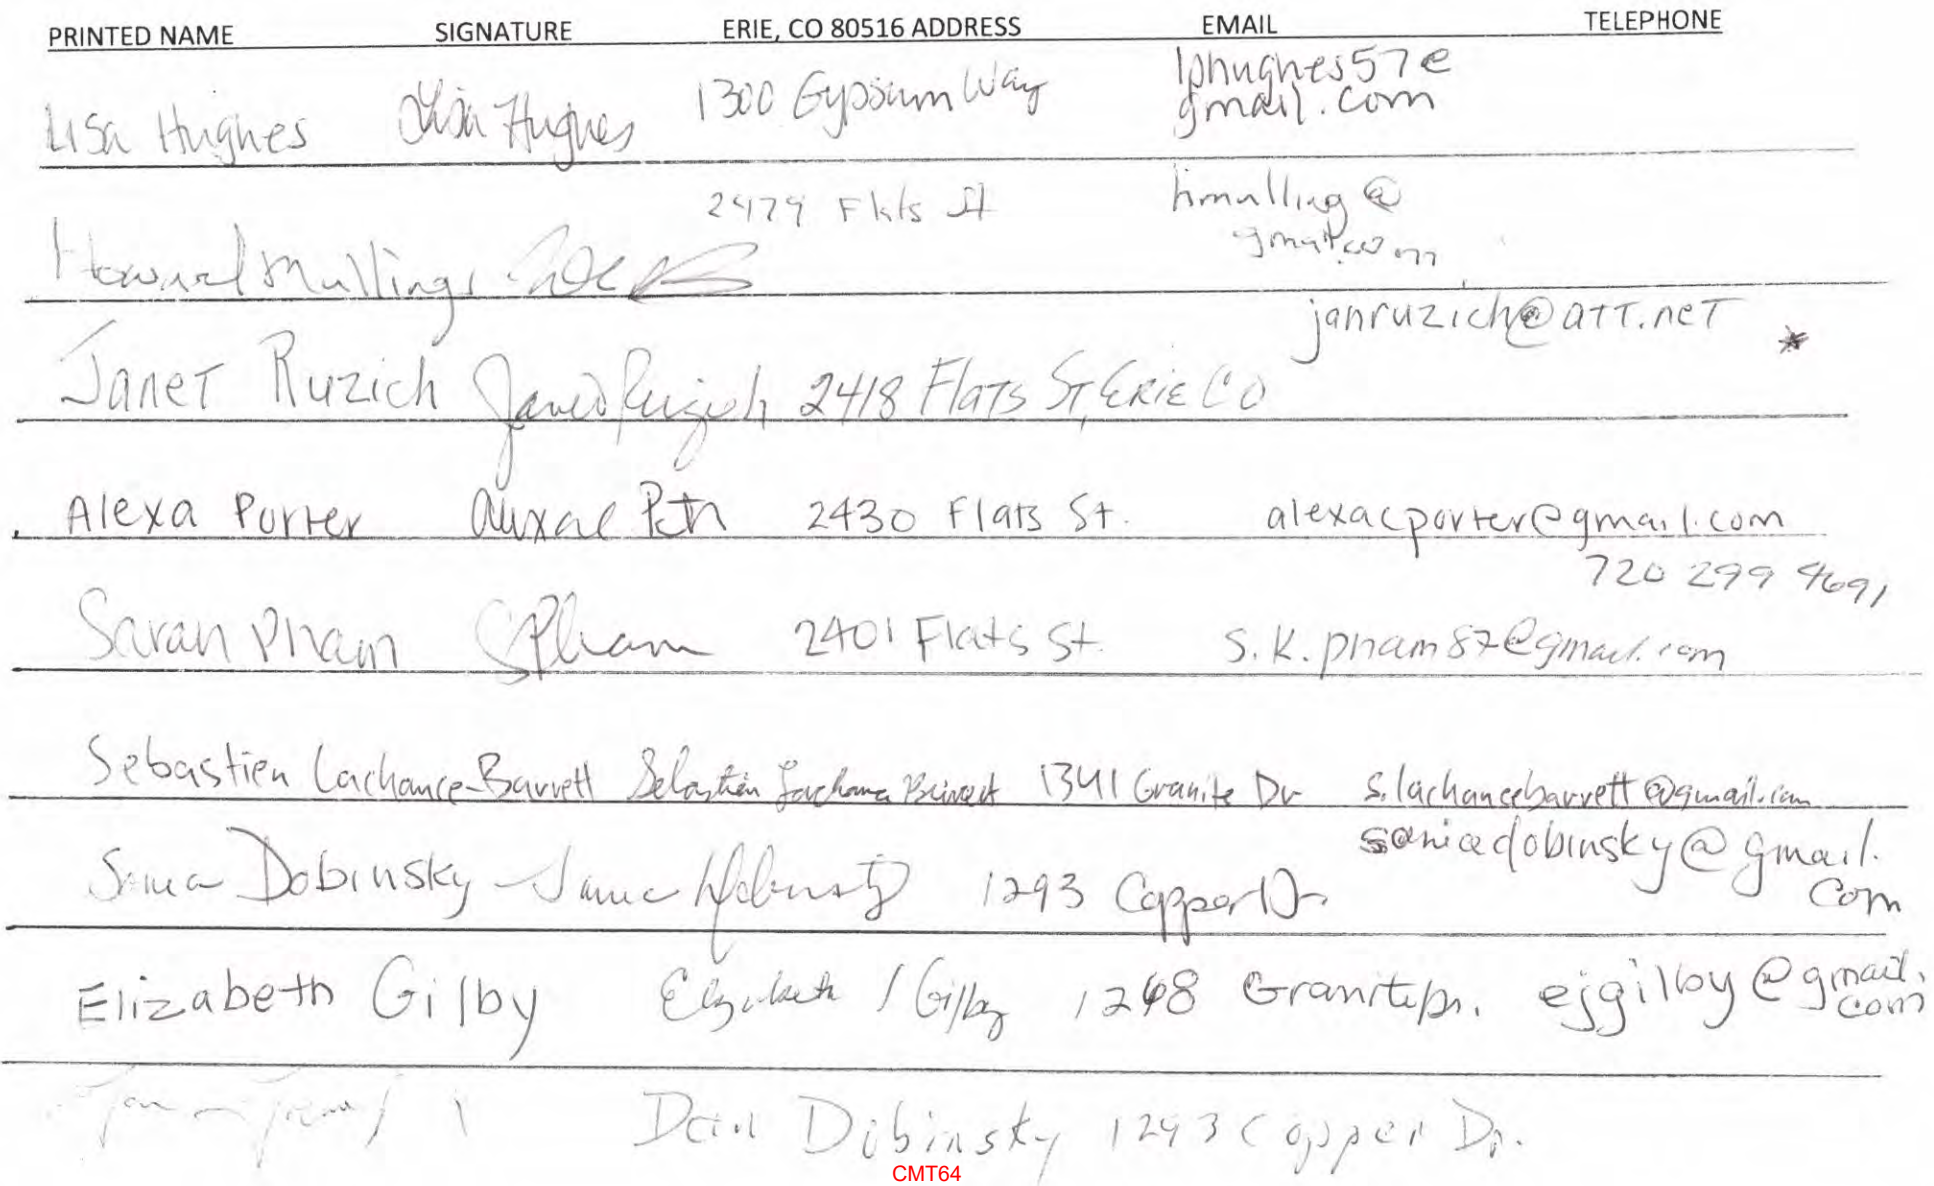 PRINTED NAME SIGNATURE ERIE, CO 80516 ADDRESS EMAIL TELEPHONE
Lisa Hughes Lisa Hughes 1300 Gypsum Way lphughes57@
gmail.com
2479 Flats St hmulling@
gmail.com
Howard Mullings
janruzich@att.net *
Janet Ruzich Janet Ruzich 2418 Flats St, Erie CO
Alexa Porter 2430 Flats St. alexacporter@gmail.com
720 299 4691
Sarah Pham SPham 2401 Flats St. s.k.pham87@gmail.com
Sebastien Lachance-Barrett Sebastien Lachance Barrett 1341 Granite Dr s.lachancebarrett@gmail.com
soniadobinsky@gmail.
com
Sonia Dobinsky Sonia Dobinsky 1293 Copper Dr
Elizabeth Gilby Elizabeth J Gilby 1268 Granite Dr. ejgilby@gmail.
com
Dobinsky 1293 Copper Dr.
CMT64